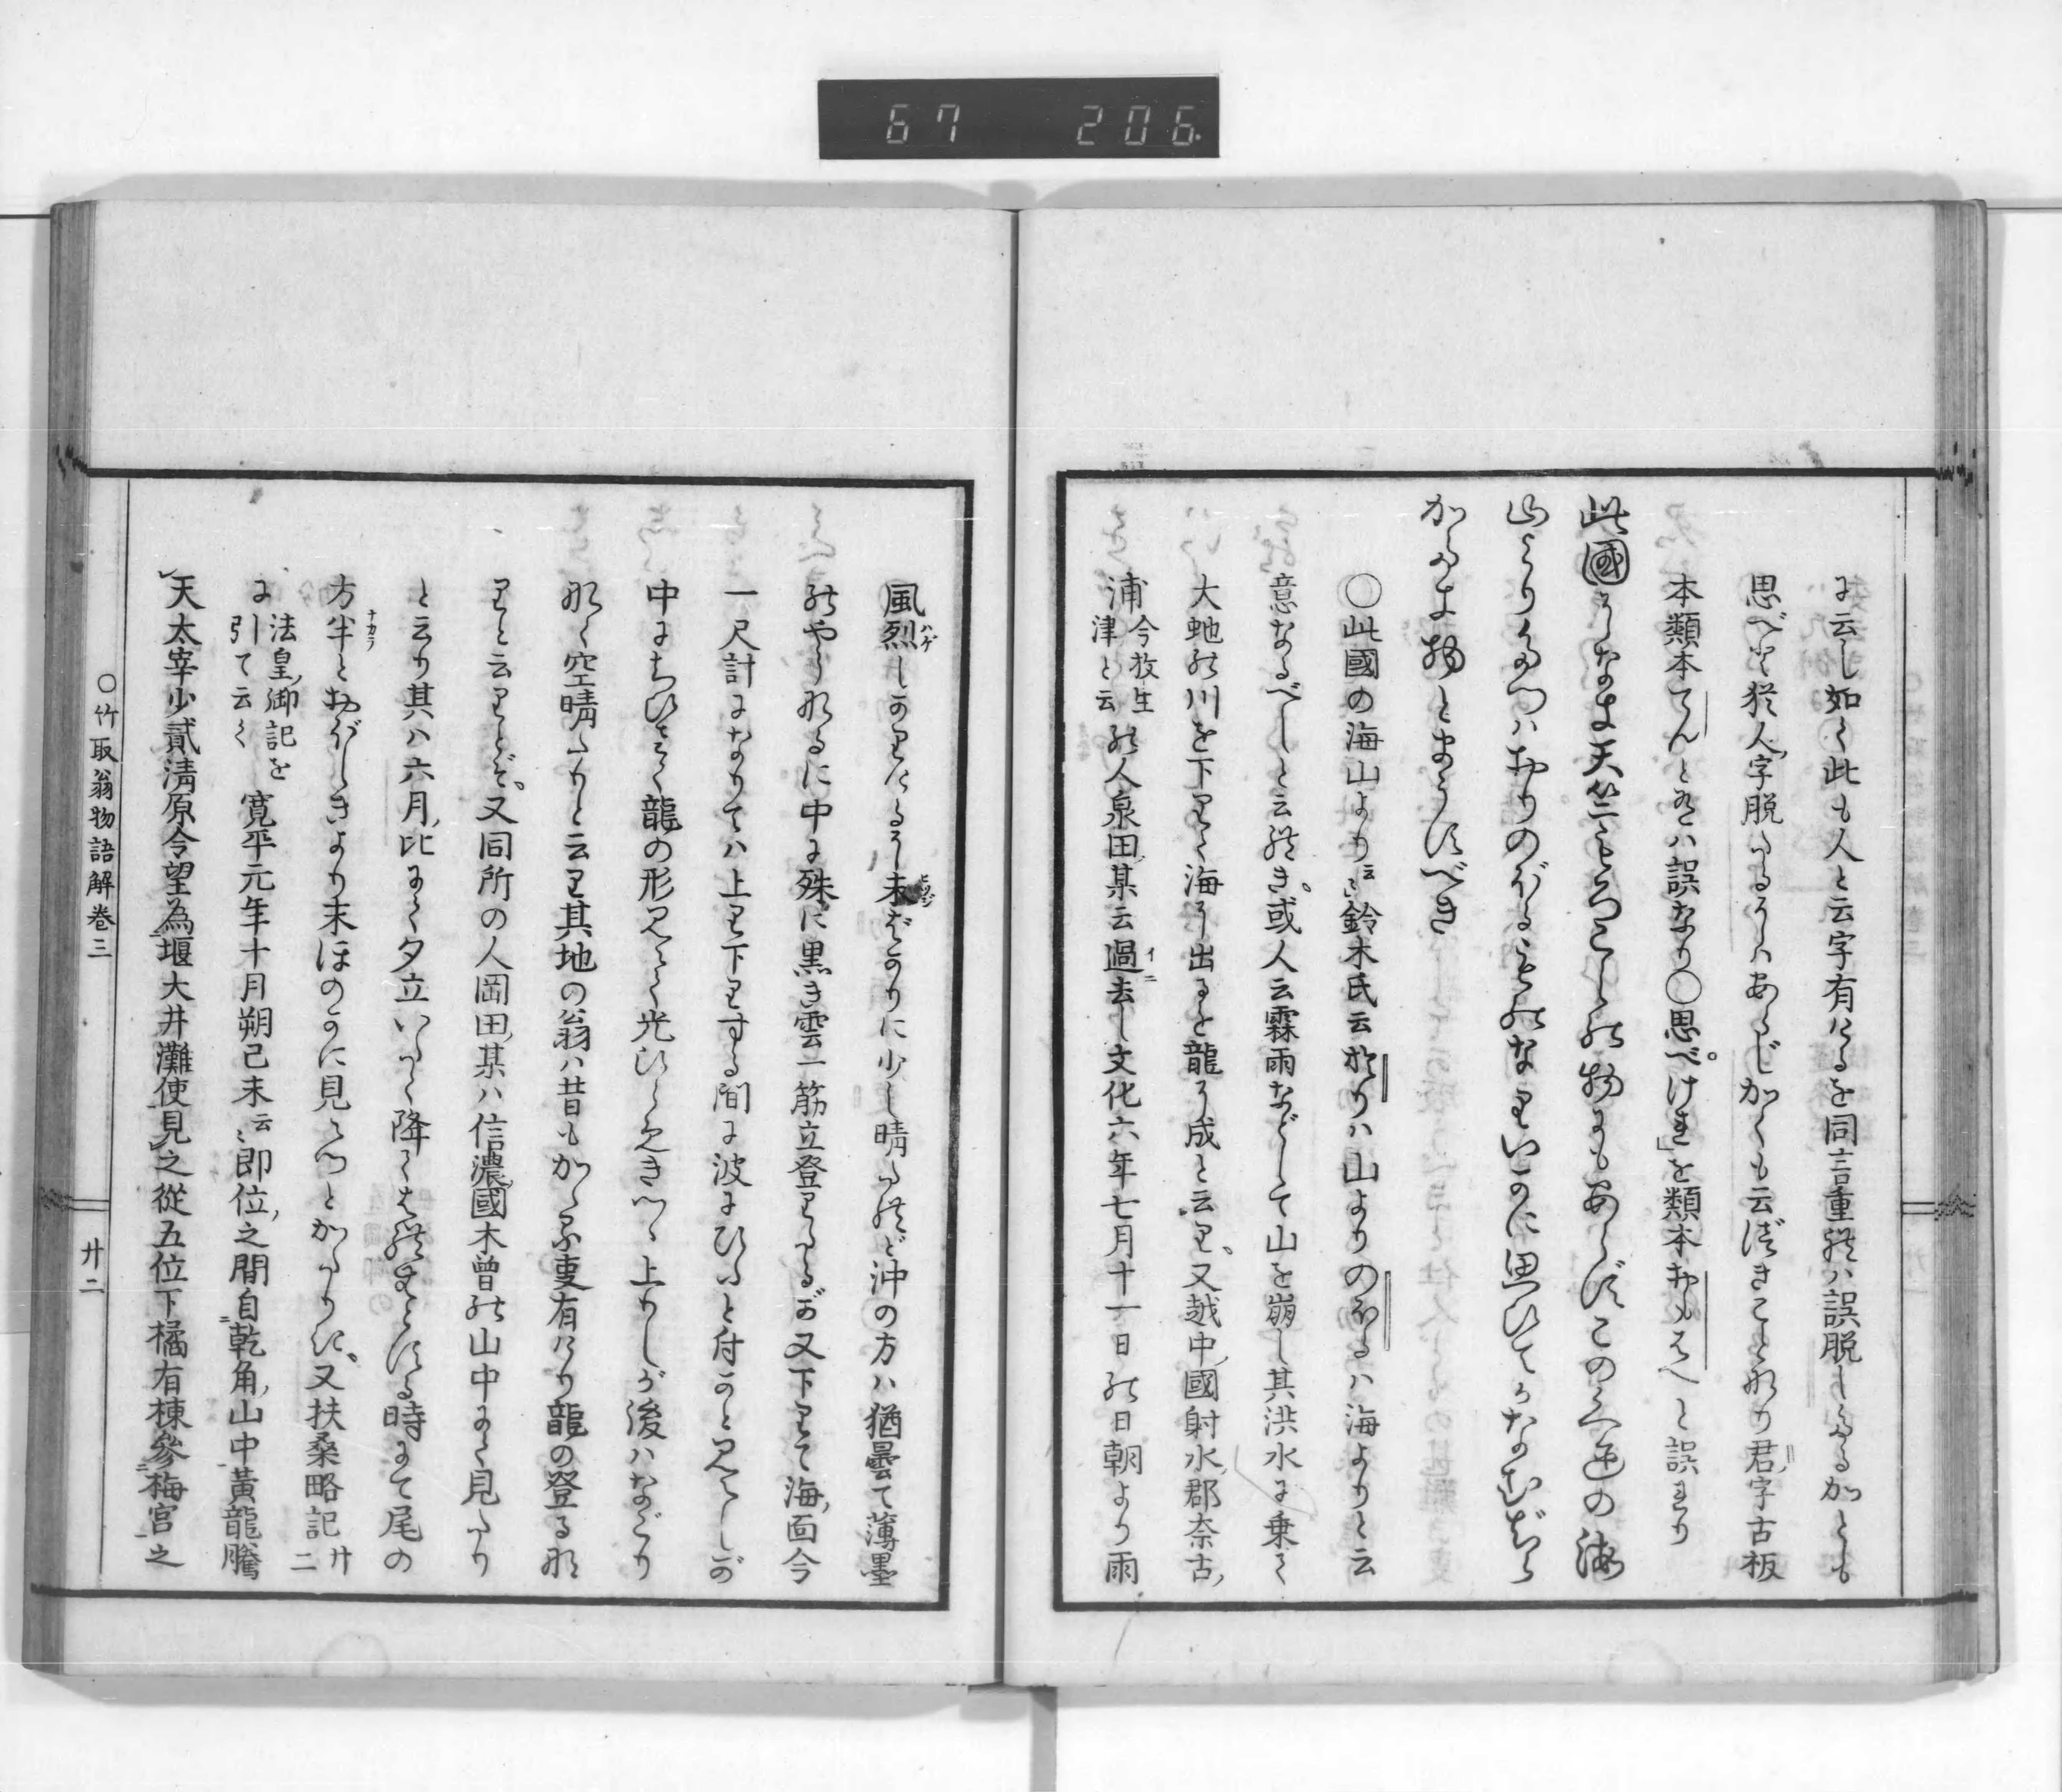 67 206
に云し如く此も人と云字有けるを同言重れハ誤脱したるかとも
思べど猶人字脱たるにハあらじかくも云べきことなり君字古板
本類本てんと有ハ誤なり○思べけれを類本おもはへと誤まり
此國になき天竺もろこしの物にもあらずこの國の海
山よりたつハおりのぼるものなりいかに思ひてかなんぢら
かたき物とまうすべき
○此國の海山より云々鈴木氏云於りハ山よりのぼるハ海よりと云
意なるべしと云れき或人云霖雨などして山を崩し其洪水に乗て
大虵の川を下りて海に出るを龍に成と云り又越中國射水郡奈古
浦今放生津と云の人泉田某云過去し文化六年七月十一日の日朝より雨
風烈しかりける未ばかりに少し晴たれど沖の方ハ猶曇て薄墨
のやうなるに中に殊に黒き雲一筋立登りたるが又下りて海面今
一尺計になりてハ上り下りする間に波にひたと付かと見えしが
中にちひさく龍の形見えて光ひらめきつゝ上りしが後ハなごり
なく空晴たりと云り其地の翁ハ昔もかゝる事有けり龍の登るな
りと云りとぞ又同所の人岡田某ハ信濃國木曽の山中にて見たり
と云り其ハ六月比にて夕立いたく降てはれむとする時にて尾の
方半とおぼしきより末ほのかに見えつとかたりき又扶桑略記廿二
に法皇御記を引て云く寛平元年十月朔己未云々即位之間自乾角山中黄龍騰
天太宰少貳清原令望為堰大井灘使見之從五位下橘有棟參梅宮之
○竹取翁物語解巻三
廿二